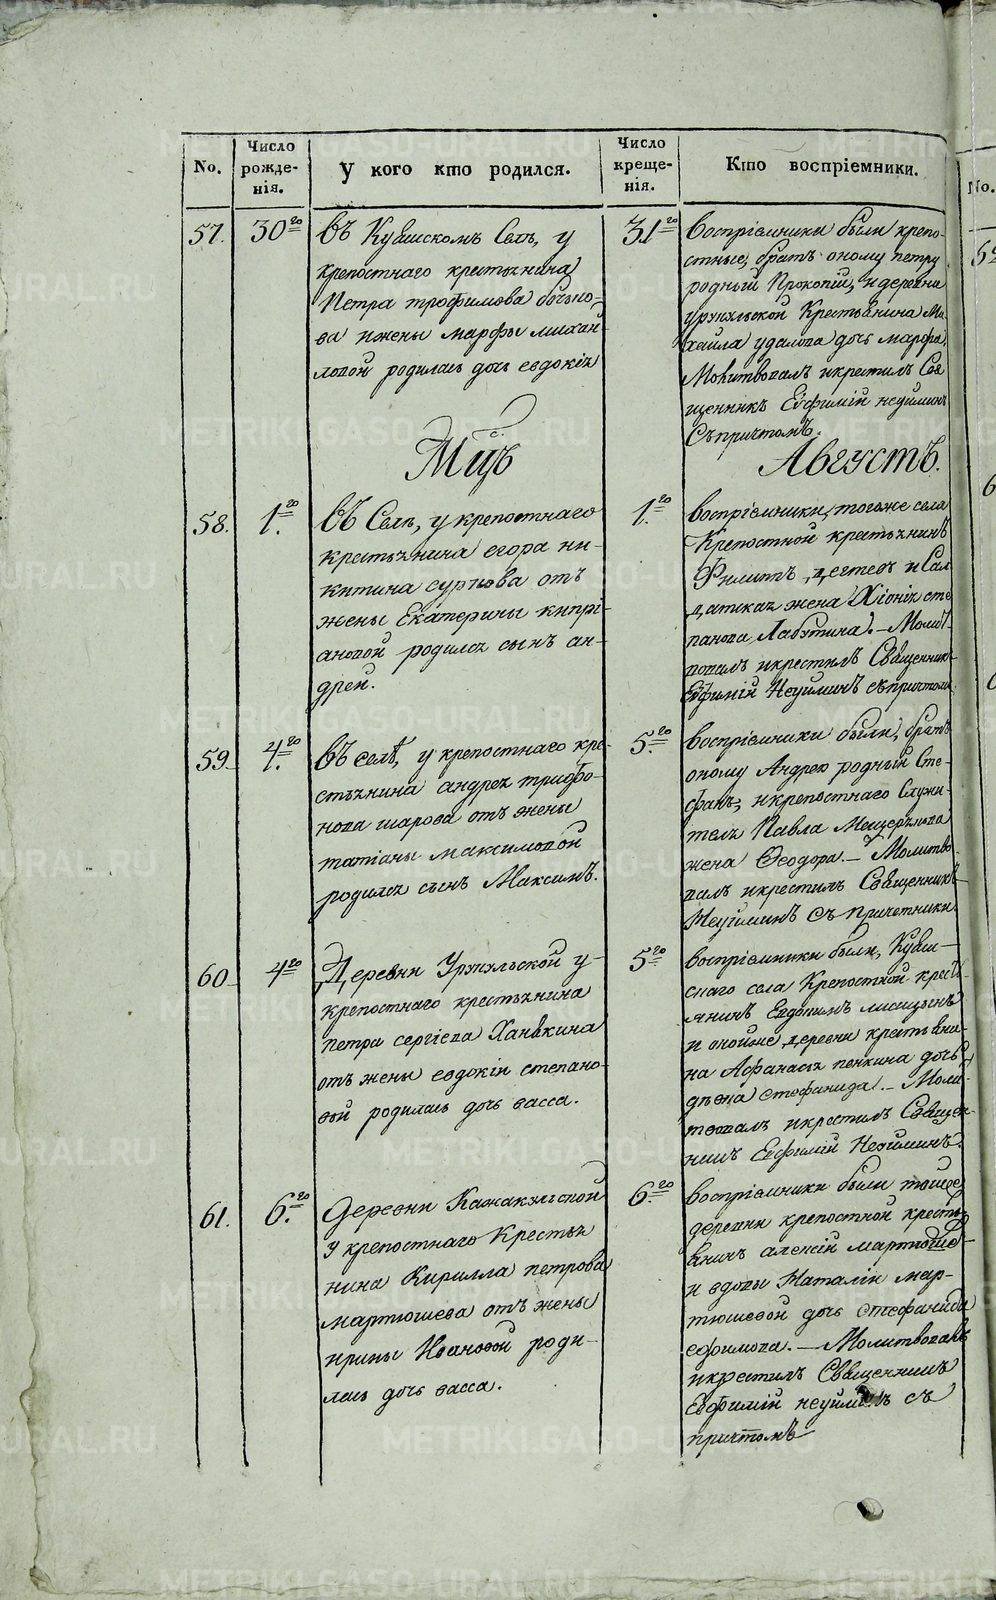 No.
Число рожденія.
У кого кто родился.
Число крещенія.
Кто воспріемники.
57.
30го
въ Кувинскомъ Селѣ, у
крепостнаго крестьянина
Петра трофимова
ва ижены марфы михаи
ловой родилась дочь евдокія
31го
воспріемники были крепо-
стные, братъ оному петру
родный Прокопій, идеревни
крестьянина Ми
хаила удалова дочь марфа
Молитвовалъ икрестилъ Свя
щенникъ Евфимій неуйминъ
Съпричтомъ.
Мцъ
Августъ.
58.
1го
въ Селѣ, у крепостнаго
крестьянина егора ни-
китина отъ
жены Екатерины кипрі-
ановой родился сынъ ан-
дрей.
1го
воспріемники, тогоже села
Крепостной крестьянинъ
Филиппъ, и Сал
датская жена Хіонія сте
панова Лабутина. — Молит
вовалъ икрестилъ Священникъ
Евфимій Неуйминъ съпричтомъ
59
4го
въ селѣ, у крепостнаго кре-
стьянина андрея трифо-
нова шарова отъ жены
татіаны максимовой
родился сынъ Максимъ.
5го
воспріемники были, братъ
оному Андрею родный Сте-
фанъ, икрепостнаго Служи-
теля Павла Мещерякова
жена Феодора. — Молитво
валъ икрестилъ Священникъ
Неуйминъ съ причетники.
60
4го
Деревни у-
крепостнаго крестьянина
петра сергіева Ханькина
отъ жены евдокіи степано-
вой родилась дочь васса.
5го
воспріемники были, Куви-
скаго села Крепостной крест
янинъ Евдокимъ лисицынъ
и оной же деревни крестьяни-
на Афанасья пенкина дочь
дѣвка стефанида. — Моли-
твовалъ икрестилъ Священ-
никъ Евфимій Неуйминъ.
61.
6го
Деревни
у крепостнаго Крестья
нина Кирилла петрова
мартюшева отъ жены
ирины Ивановой роди-
лась дочь васса.
6го
воспріемники были тойже
деревни крепостной кресть
янинъ алексій мартюшев
и вдовы Наталіи мар-
тюшевой дочь стефанида
ефимова. — Молитвовалъ
икрестилъ Священникъ
Евфимій неуйминъ съ
причтомъ
No.
METRIKI.GASO-URAL.RU